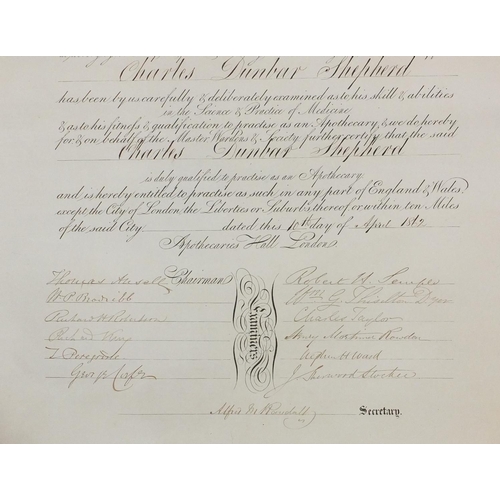 Charles Dunbar Shepherd
has been by us carefully & deliberately examined as to his skill & abilities
in the Science & Practice of Medicine
& as to his fitness & qualification to practise as an Apothecary, & we do hereby
for & on behalf of the Master Wardens & Society further certify that the said
Charles Dunbar Shepherd
is duly qualified to practise as an Apothecary:
and is hereby entitled to practise as such in any part of England & Wales,
except the City of London, the Liberties or Suburbs thereof or within ten Miles
of the said City dated this 10th day of April
Apothecaries Hall London
Thomas Chairman
Robert H. Semple
W. P.
Wm
Richard H. Robertson
Charles Taylor
Richard King
Henry Mortimer Rowdon
Examiners.
Alfred H Ward
George
J. Sherwood Stocker
Alfred M Randall
Secretary.